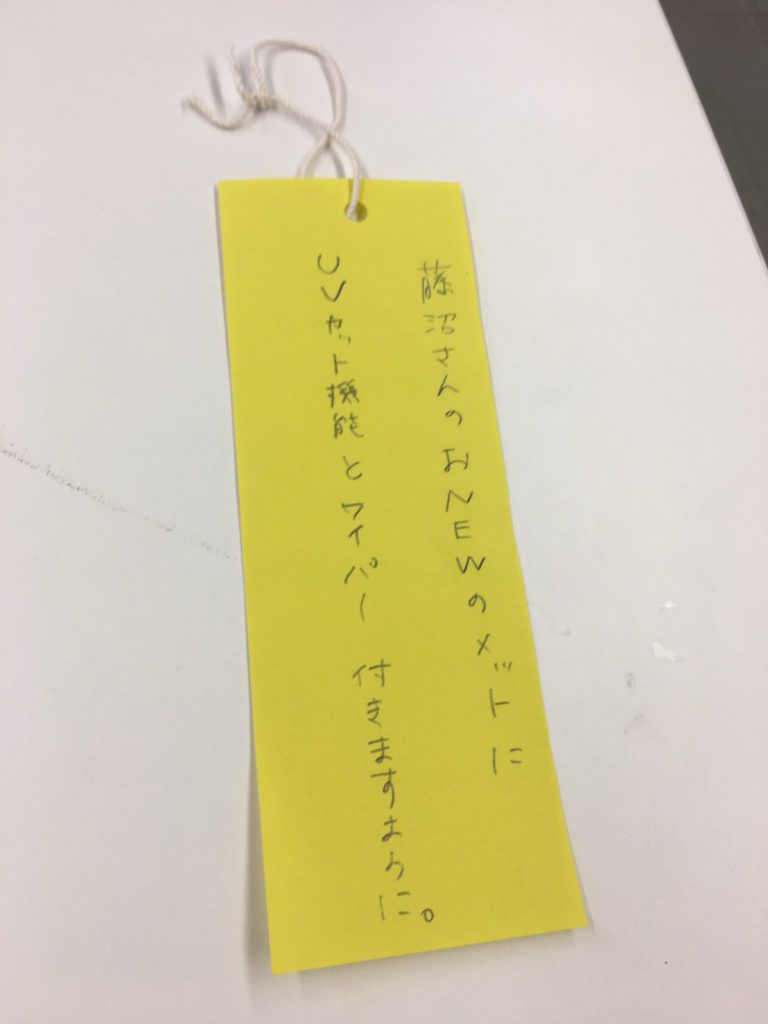 藤沼さんのおNEWのメットに
UVカット機能とワイパー 付きますように。